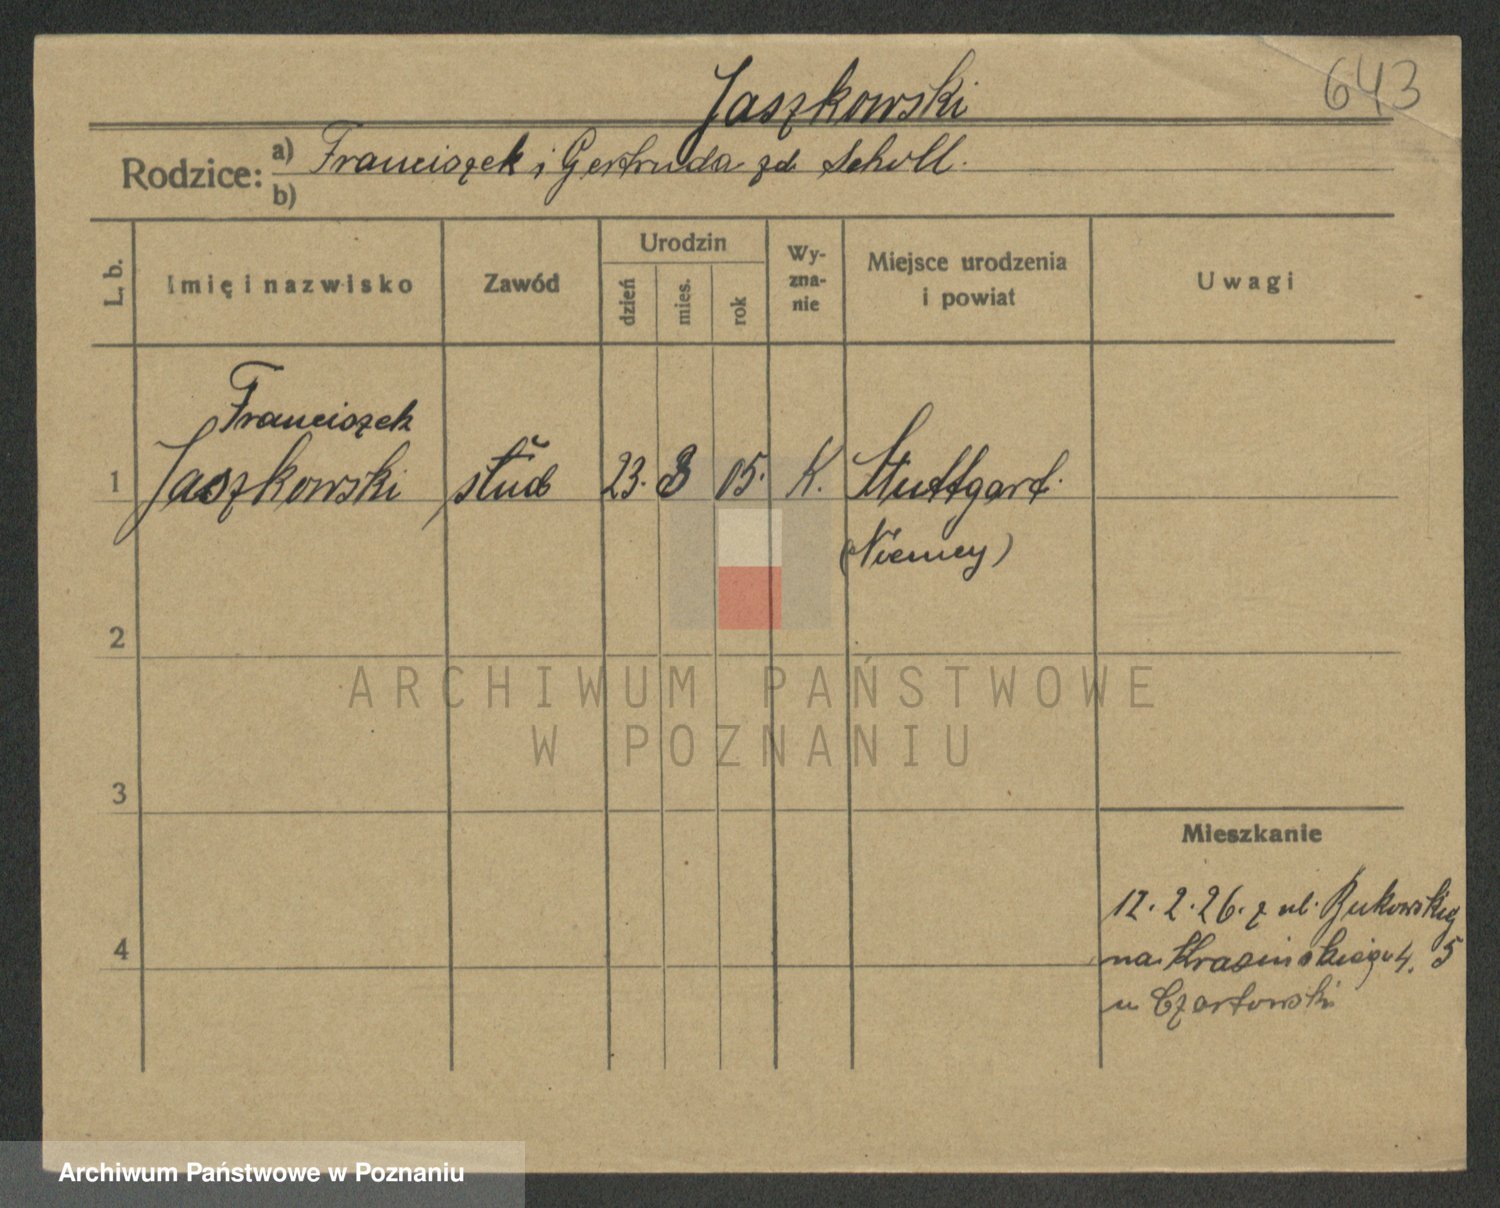 Jaszkowski
643
Rodzice: a) Franciszek i Gertruda zd. Scholl.
b)
L. b.
Imię i nazwisko
Zawód
Urodzin
dzień
mies.
rok
Wy-
zna-
nie
Miejsce urodzenia
i powiat
Uwagi
Franciszek
1 Jaszkowski stud 23. 3 05. K. Stuttgart.
(Niemcy)
2
ARCHIWUM PAŃSTWOWE
W POZNANIU
3
Mieszkanie
12. 2. 26. z ul. Bukowskiej
4
na Krasińskiego 4. 5
u Czartowski
Archiwum Państwowe w Poznaniu